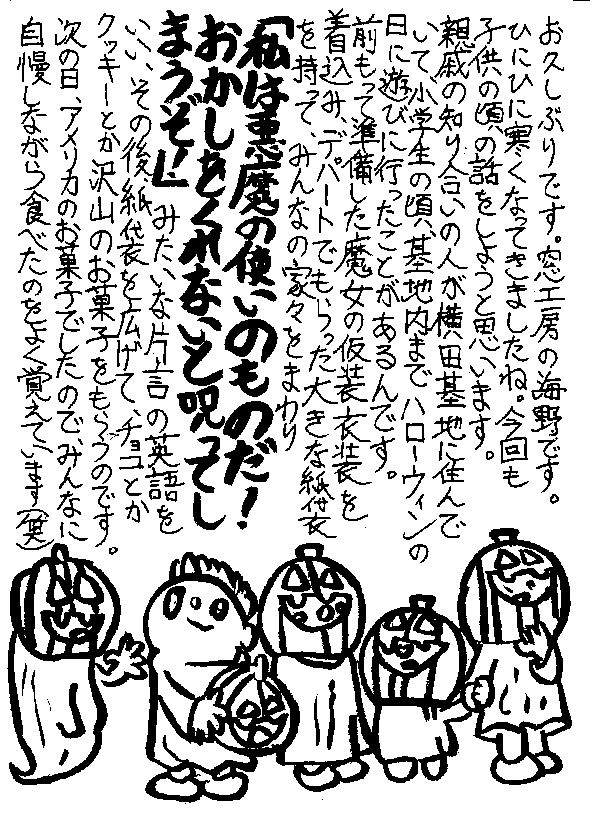 お久しぶりです。窓工房の海野です。
ひにひに寒くなってきましたね。今回も
子供の頃の話をしようと思います。
親戚の知り合いの人が横田基地に住んで
いて、小学生の頃、基地内までハローウィンの
日に遊びに行ったことがあるんです。
前もって準備した魔女の仮装衣装を
着込み、デパートでもらった大きな紙袋
を持って、みんなの家々をまわり
「私は悪魔の使いのものだ!
おかしをくれないと呪ってし
まうぞ!」みたいな片言の英語を
いい、その後紙袋を広げて、チョコとか
クッキーとか沢山のお菓子をもらうのです。
次の日、アメリカのお菓子でしたので、みんなに
自慢しながら食べたのをよく覚えています(笑)